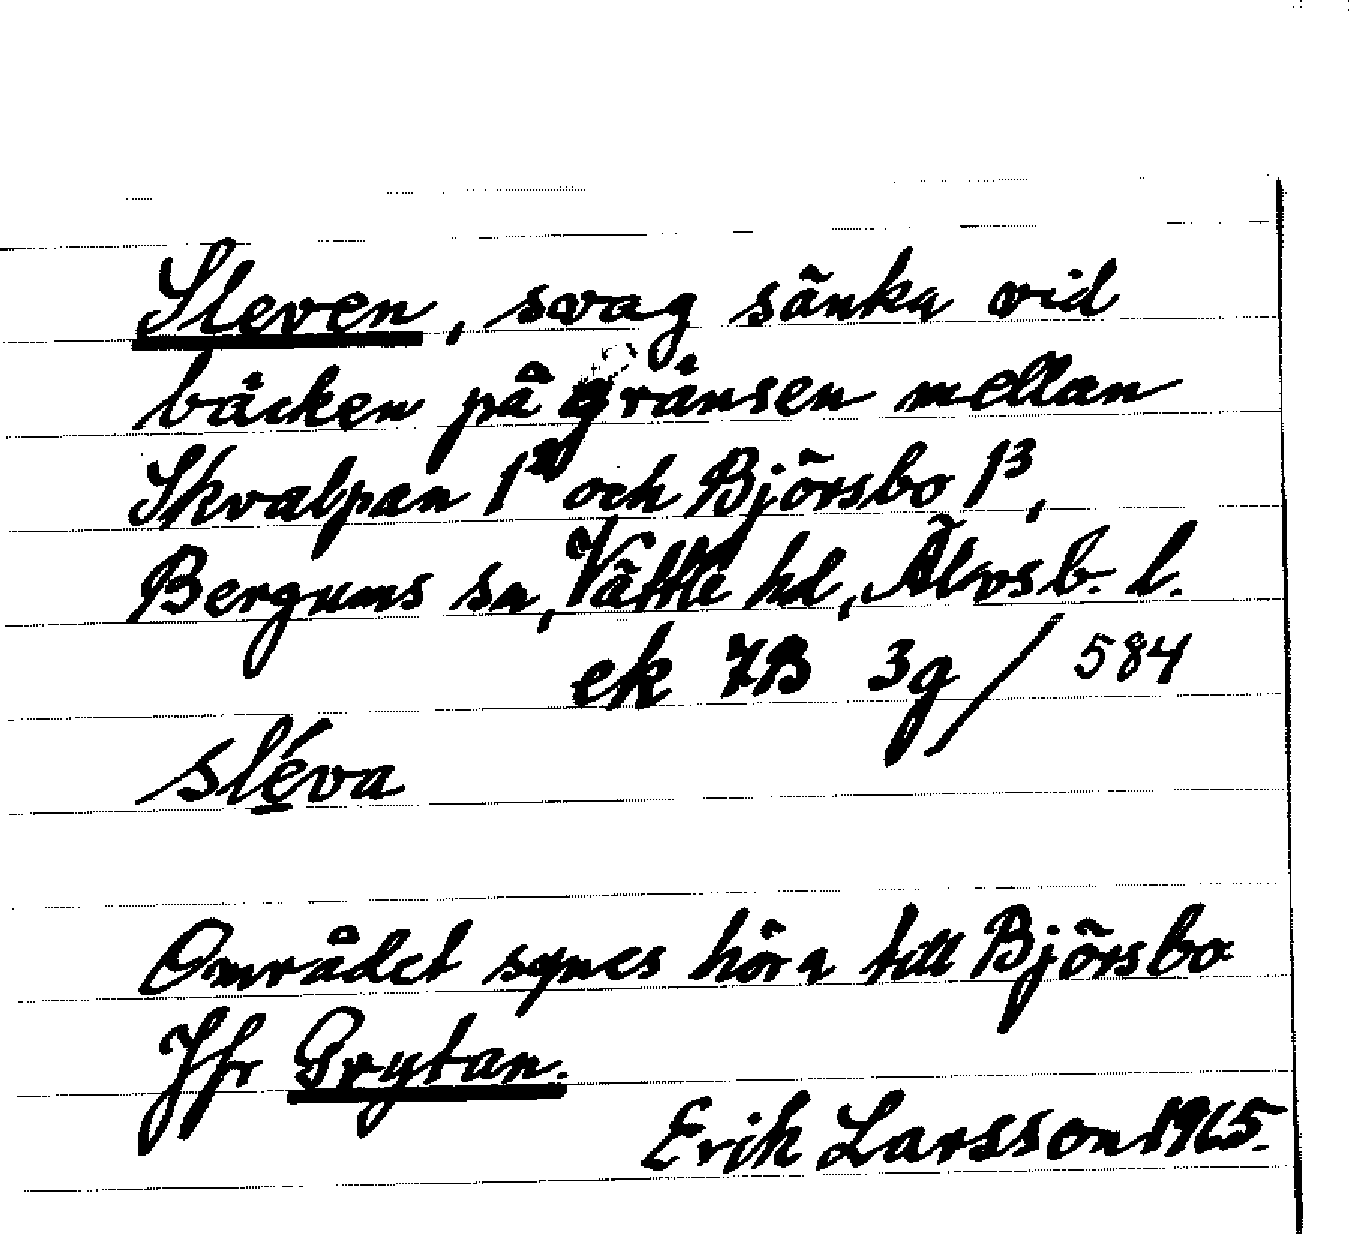 Sleven, svag sänka vid
bäcken på gränsen mellan
Skvalpan 1 och Björsbo 1³,
Bergums sn, Vättle hd, Älvsb. l.
ek 7B 3g / 584
sléva
Området synes höra till Björsbo
Jfr Grytan.
Erik Larsson 1965.